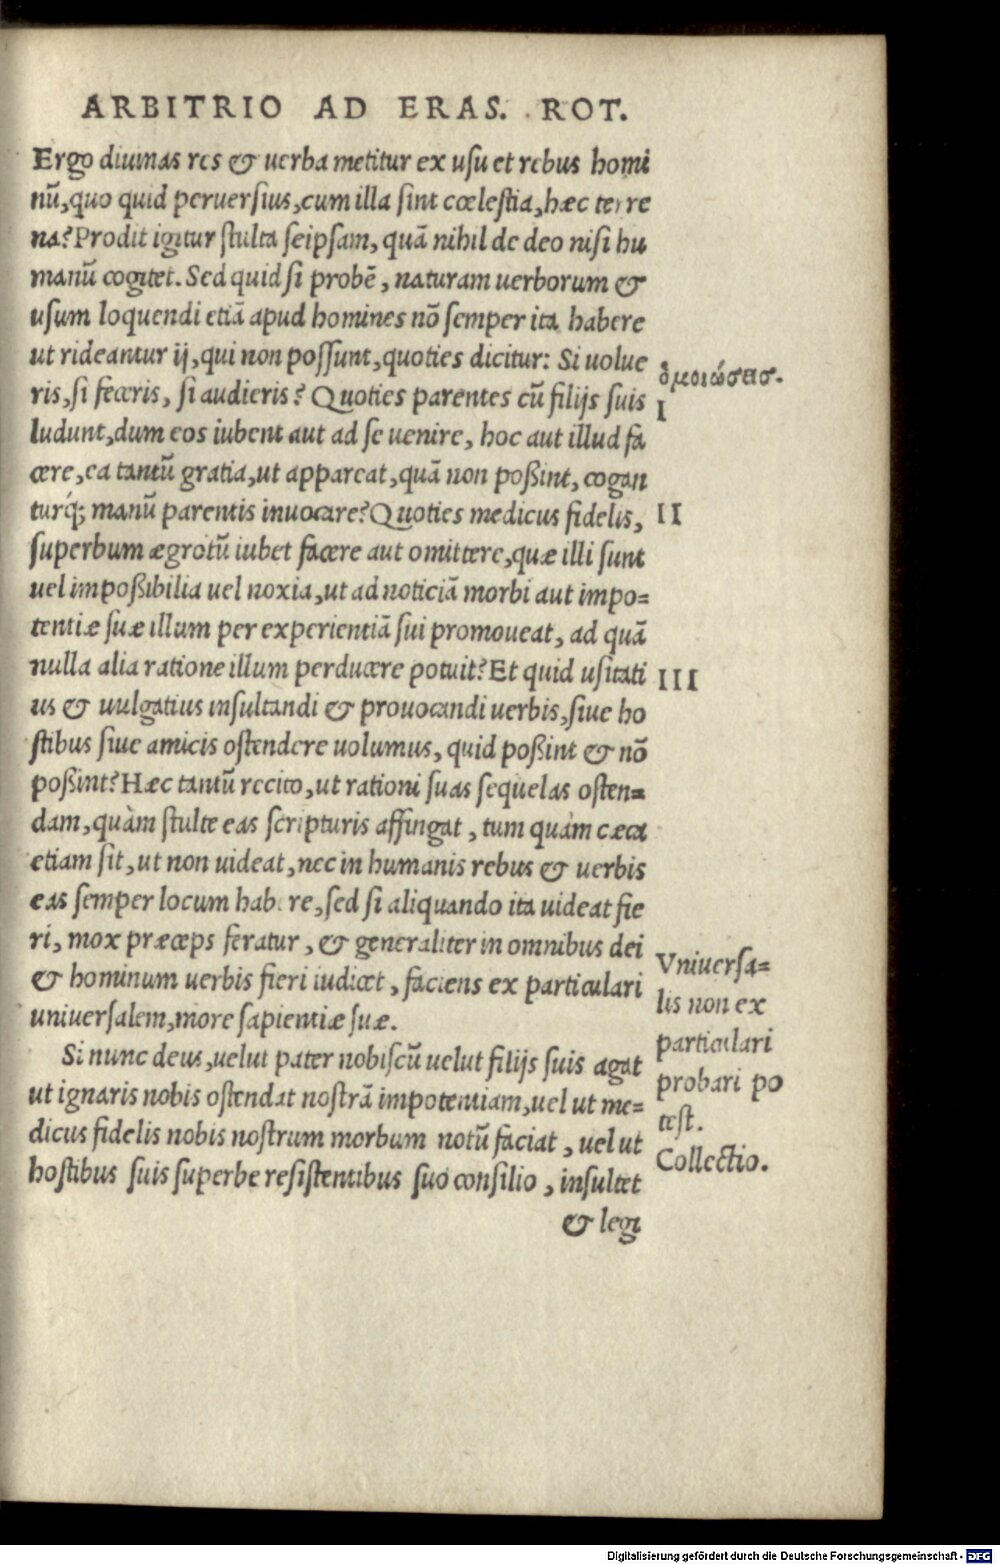 ARBITRIO AD ERAS. ROT.
Ergo diuinas res & uerba metitur ex usu et rebus homi
nũ, quo quid peruersius, cum illa sint cœlestia, hæc terre
na? Prodit igitur stulta seipsam, quã nihil de deo nisi hu
manũ cogitet. Sed quid si probẽ, naturam uerborum &
usum loquendi etiã apud homines nõ semper ita habere
ut rideantur ij, qui non possunt, quoties dicitur: Si uolue
ris, si feceris, si audieris? Quoties parentes cũ filijs suis
ludunt, dum eos iubent aut ad se uenire, hoc aut illud fa
cere, ea tantũ gratia, ut appareat, quã non poßint, cogan
turq́; manũ parentis inuocare? Quoties medicus fidelis,
superbum ægrotũ iubet facere aut omittere, quæ illi sunt
uel impoßibilia uel noxia, ut ad noticiã morbi aut impo=
tentiæ suæ illum per experientiã sui promoueat, ad quã
nulla alia ratione illum perducere potuit? Et quid usitati
us & uulgatius insultandi & prouocandi uerbis, siue ho
stibus siue amicis ostendere uolumus, quid poßint & nõ
poßint? Hæc tantũ recito, ut rationi suas sequelas osten=
dam, quàm stulte eas scripturis affingat, tum quàm cæca
etiam sit, ut non uideat, nec in humanis rebus & uerbis
eas semper locum habere, sed si aliquando ita uideat fie
ri, mox præceps feratur, & generaliter in omnibus dei
& hominum uerbis fieri iudicet, faciens ex particulari
uniuersalem, more sapientiæ suæ.
Si nunc deus, uelut pater nobiscũ uelut filijs suis agat
ut ignaris nobis ostendat nostrã impotentiam, uel ut me=
dicus fidelis nobis nostrum morbum notũ faciat, uel ut
hostibus suis superbe resistentibus suo consilio, insultet
& legi
ὁμοιώσεισ.
I
II
III
Vniuersa=
lis non ex
particulari
probari po
test.
Collectio.
Digitalisierung gefördert durch die Deutsche Forschungsgemeinschaft - DFG